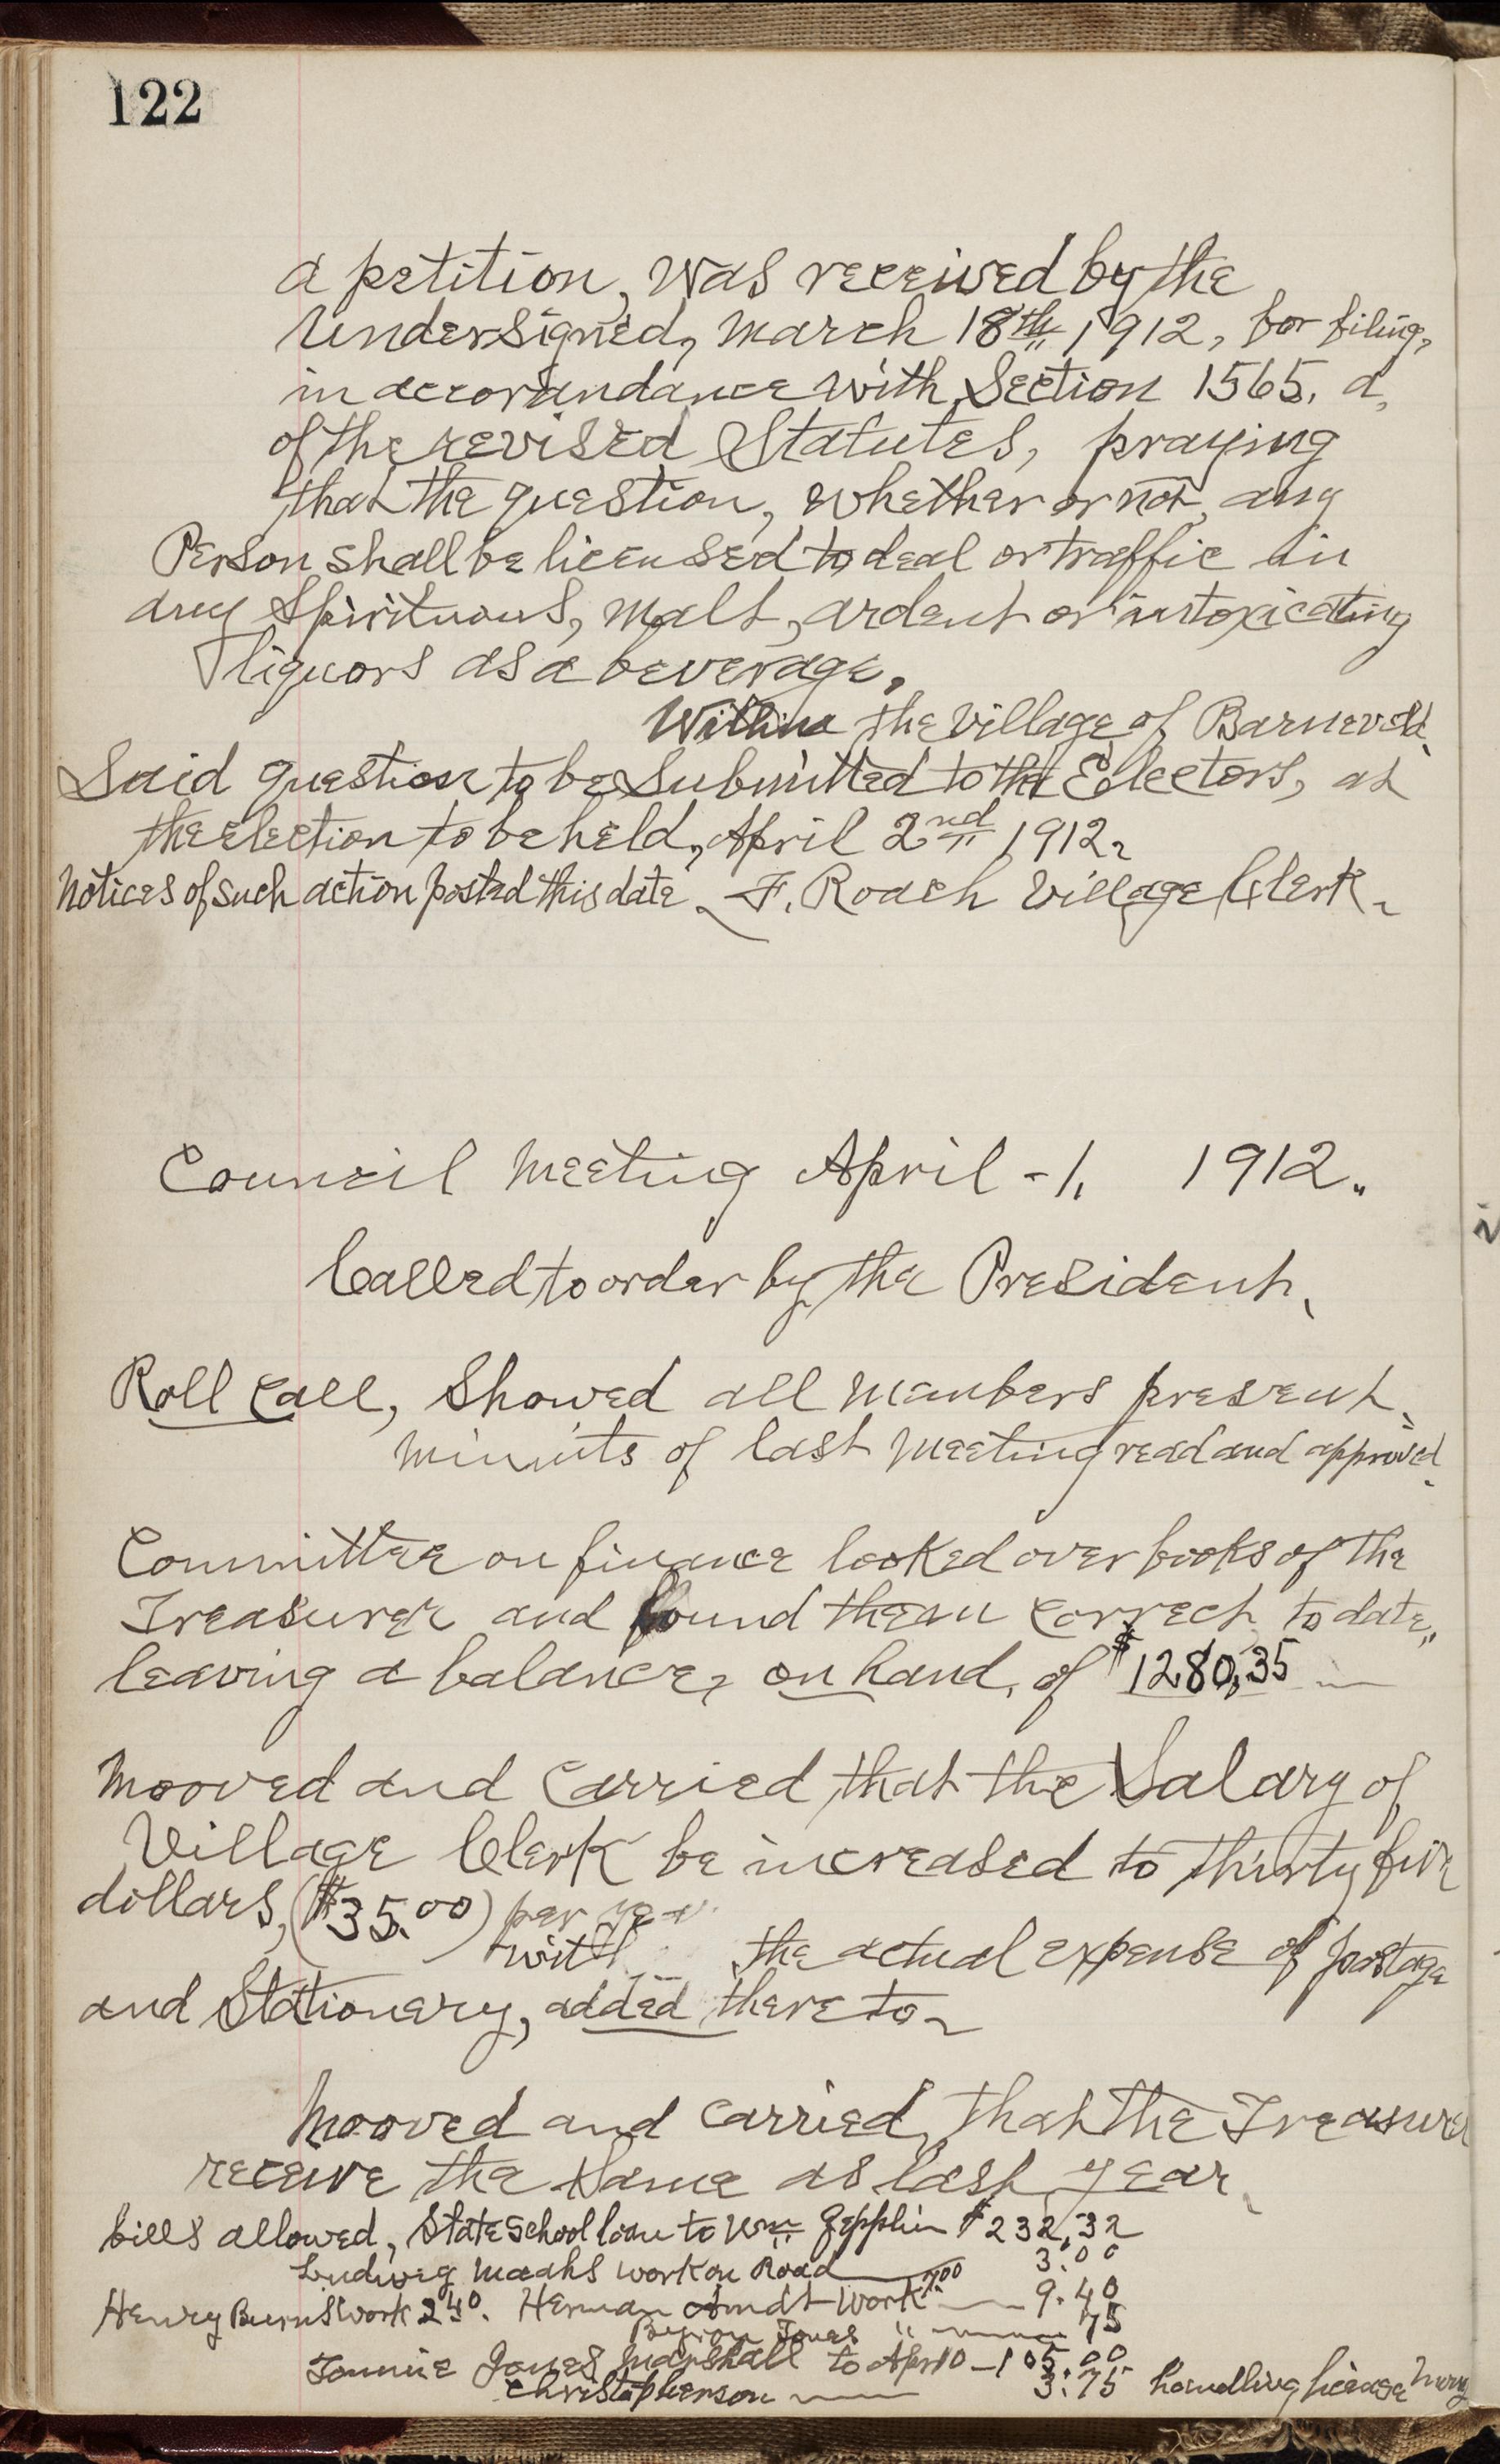 122
a petition, was received by the
Undersigned, March 18th 1912, for filing,
in accorandance with Section 1565. a,
of the revised Statutes, praying
that the question, whether or not, any
Person shall be licensed to deal or traffic in
any Spirituous, Malt, ardent or intoxicating
liquors as a beverage,
Within the Village of Barneveld.
Said question to be Submitted to the Electors, at
the election to be held, April 2nd 1912.
Notices of such action posted this date. F. Roach Village Clerk.
Council Meeting April - 1. 1912.
Called to order by the President.
Roll call, Showed all members present.
Minuits of last Meeting read and approved.
Committee on finance looked over books of the
Treasurer and found them correct to date,
leaving a balance, on hand, of $1280,35
Mooved and Carried that the Salary of
Village Clerk be increased to thirty five
dollars, ($35.00) per year
with the actual expense of postage
and Stationery, added there to
Mooved and carried, that the Treasurer
receive the Same as last year.
bills allowed, State School loan to Wm Zepplin $232,32
Ludwig Maahs work on Road 3.00
Henry Burns Work 2.40. Herman Arndt Work 7.00 9.40
Byron Jones " 75
Tommie Jones Marshall to Apr 10 - 105.00
Christopherson 3.75 handling